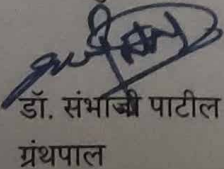 डॉ. संभाजी पाटील
ग्रंथपाल